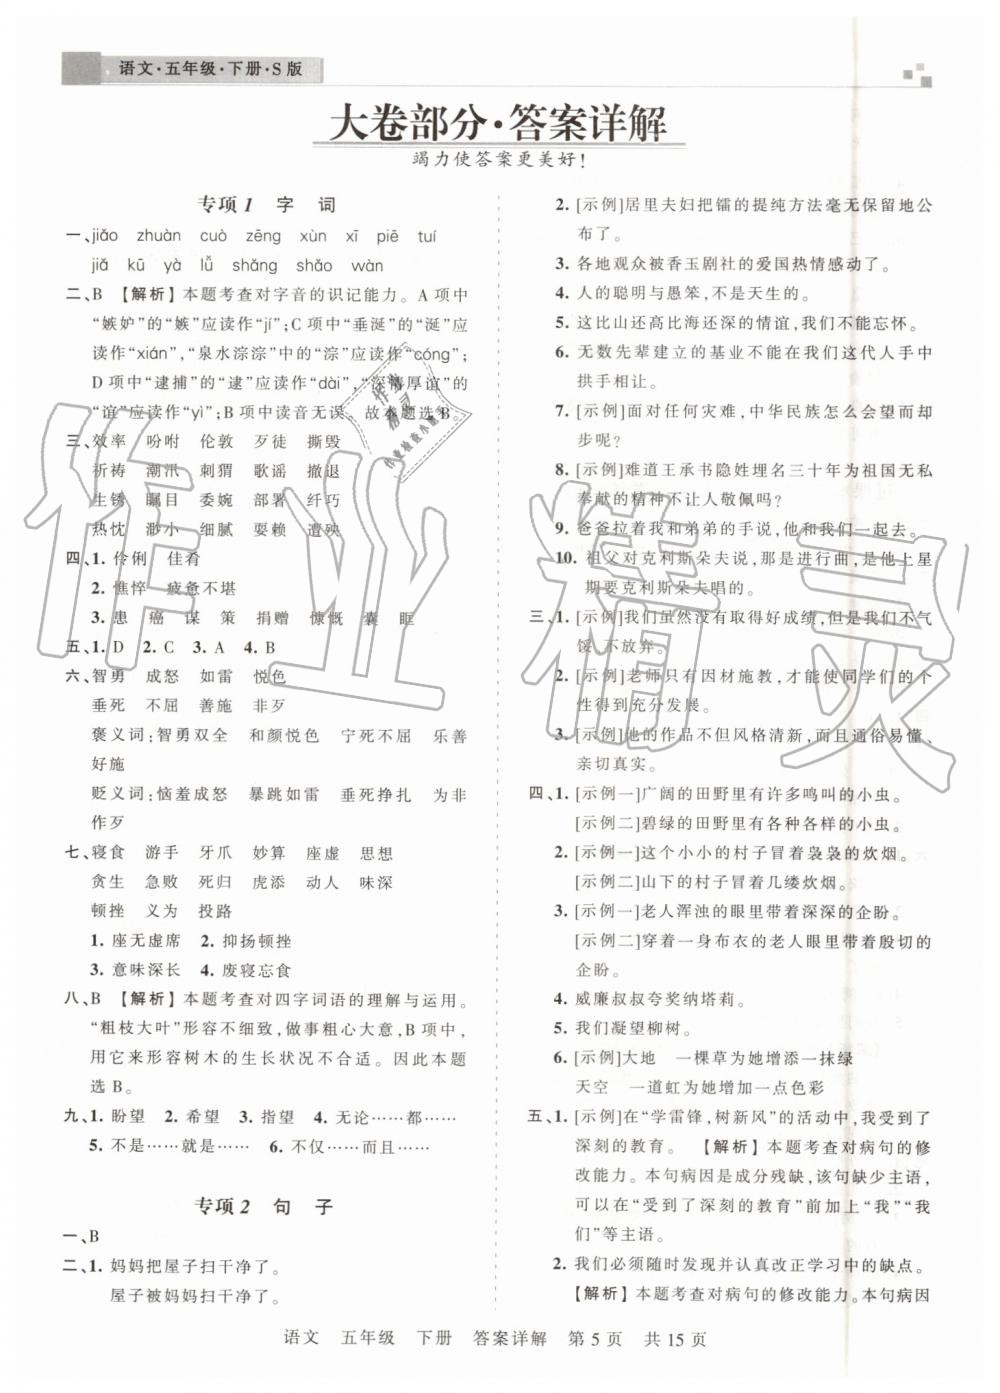 语文·五年级·下册·S版
大卷部分·答案详解
竭力使答案更美好！
专项1 字 词
一、jiǎo zhuàn cuò zēng xùn xī piē tuí
jiǎ kū yà lǜ shāng shǎo wàn
二、B 【解析】本题考查对字音的识记能力。A 项中
“嫉妒”的“嫉”应读作“jí”；C 项中“垂涎”的“涎”应
读作“xián”，“泉水淙淙”中的“淙”应读作“cóng”；
D 项中“逮捕”的“逮”应读作“dài”，“深情厚谊”的
“谊”应读作“yì”；B 项中读音无误。故本题选 B。
三、效率 吩咐 伦敦 歹徒 撕毁
祈祷 潮汛 刺猬 歌谣 撤退
生锈 瞩目 委婉 部署 纤巧
热忱 渺小 细腻 耍赖 遭殃
四、1. 伶俐 佳肴
2. 憔悴 疲惫不堪
3. 患 癌 谋 策 捐赠 慷慨 囊 眶
五、1. D 2. C 3. A 4. B
六、智勇 成怒 如雷 悦色
垂死 不屈 善施 非歹
褒义词：智勇双全 和颜悦色 宁死不屈 乐善
好施
贬义词：恼羞成怒 暴跳如雷 垂死挣扎 为非
作歹
七、寝食 游手 牙爪 妙算 座虚 思想
贪生 急败 死归 虎添 动人 味深
顿挫 义为 投路
1. 座无虚席 2. 抑扬顿挫
3. 意味深长 4. 废寝忘食
八、B 【解析】本题考查对四字词语的理解与运用。
“粗枝大叶”形容不细致，做事粗心大意，B 项中，
用它来形容树木的生长状况不合适。因此本题
选 B。
九、1. 盼望 2. 希望 3. 指望 4. 无论……都……
5. 不是……就是…… 6. 不仅……而且……
专项2 句 子
一、B
二、1. 妈妈把屋子扫干净了。
屋子被妈妈扫干净了。
2. [示例]居里夫妇把镭的提纯方法毫无保留地公
布了。
3. 各地观众被香玉剧社的爱国热情感动了。
4. 人的聪明与愚笨，不是天生的。
5. 这比山还高比海还深的情谊，我们不能忘怀。
6. 无数先辈建立的基业不能在我们这代人手中
拱手相让。
7. [示例]面对任何灾难，中华民族怎么会望而却
步呢？
8. [示例]难道王承书隐姓埋名三十年为祖国无私
奉献的精神不让人敬佩吗？
9. 爸爸拉着我和弟弟的手说，他和我们一起去。
10. 祖父对克利斯朵夫说，那是进行曲，是他上星
期要克利斯朵夫唱的。
三、1. [示例]我们虽然没有取得好成绩，但是我们不气
馁，不放弃。
2. [示例]老师只有因材施教，才能使同学们的个
性得到充分发展。
3. [示例]他的作品不但风格清新，而且通俗易懂、
亲切真实。
四、1. [示例一]广阔的田野里有许多鸣叫的小虫。
[示例二]碧绿的田野里有各种各样的小虫。
2. [示例一]这个小小的村子冒着袅袅的炊烟。
[示例二]山下的村子冒着几缕炊烟。
3. [示例一]老人浑浊的眼里带着深深的企盼。
[示例二]穿着一身布衣的老人眼里带着殷切的
企盼。
4. 威廉叔叔夸奖纳塔莉。
5. 我们凝望柳树。
6. [示例]大地 一棵草为她增添一抹绿
天空 一道虹为她增加一点色彩
五、1. [示例]在“学雷锋，树新风”的活动中，我受到了
深刻的教育。 【解析】本题考查对病句的修
改能力。本句病因是成分残缺，该句缺少主语，
可以在“受到了深刻的教育”前加上“我”“我
们”等主语。
2. 我们必须随时发现并认真改正学习中的缺点。
【解析】本题考查对病句的修改能力。本句病因
语文 五年级 下册 答案详解 第 5 页 共 15 页
作业精灵